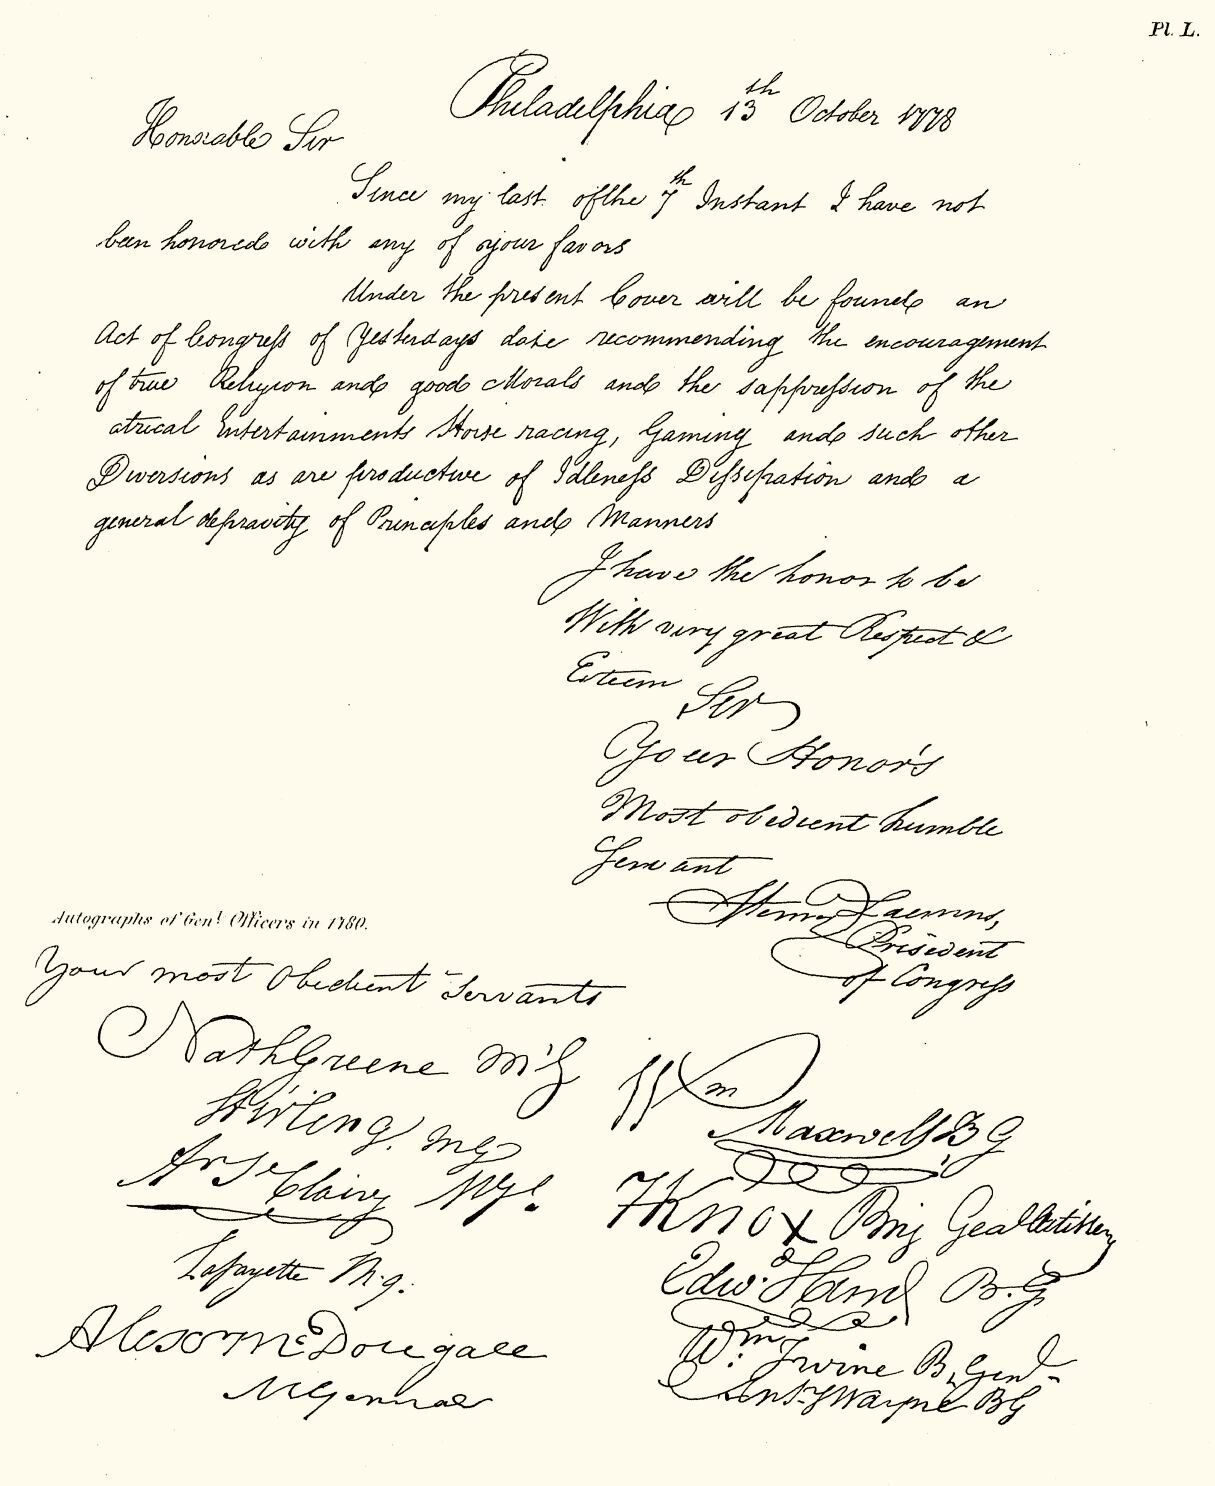 Pl. L.
Philadelphia 13th October 1778
Honorable Sir
Since my last of the 7th Instant I have not
been honored with any of your favors
Under the present Cover will be found an
Act of Congress of Yesterdays date recommending the encouragement
of true Religion and good Morals and the suppression of the
atrical Entertainments Horse racing, Gaming and such other
Diversions as are productive of Idleness Dissipation and a
general depravity of Principles and Manners
I have the honor to be
With very great Respect &
Esteem
Sir
Your Honor's
Most obedient humble
Servant
Henry Laurens,
President
of Congress
Autographs of Genl. Officers in 1780.
Your most Obedient Servants
Nath Greene M'G
Stirling. MG
Ar St Clair, M Gl.
Lafayette M.g.
Alexr McDougall
M General
Wm
Maxwell B G
HKnox Brig Genl Artillery
Edwd. Hand B.G.
Wm. Irvine B, Genl
Anty Wayne BG